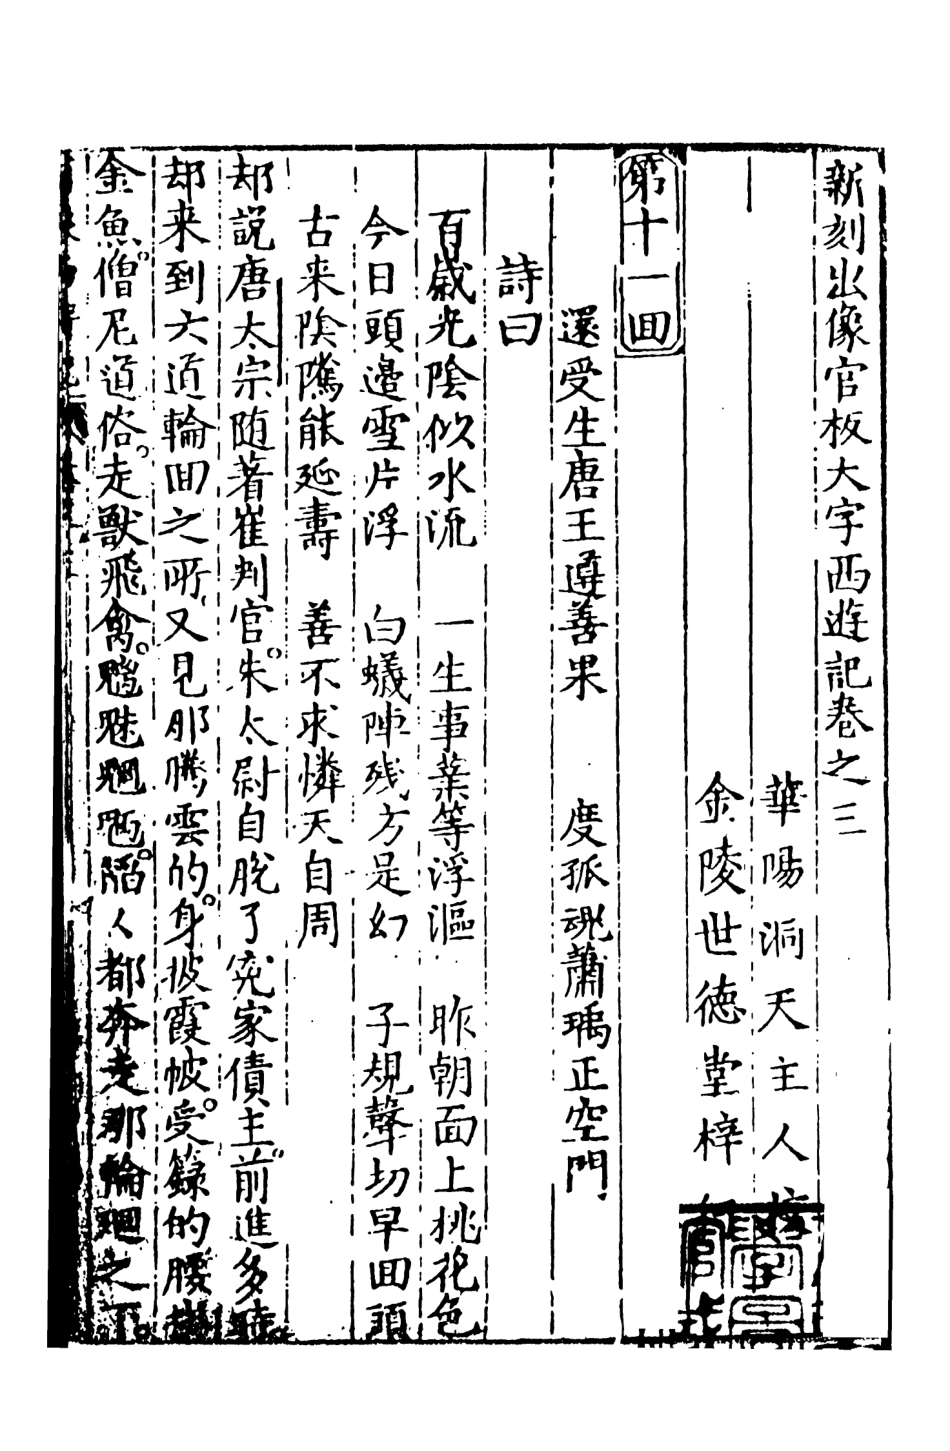 新刻出像官板大字西遊記卷之三
華陽洞天主人校
金陵世德堂梓行
第十一回
還受生唐王遵善果　度孤魂蕭瑀正空門
詩曰
百歲光陰似水流　一生事業等浮漚　昨朝面上桃花色
今日頭邊雪片浮　白蟻陣殘方是幻　子規聲切早回頭
古来陰隲能延壽　善不求憐天自周
却説唐太宗随著崔判官。朱太尉自脫了冤家債主。前進多時
却来到六道輪回之所。又見那騰雲的。身披霞帔。受籙的腰掛
金魚。僧尼道俗。走獸飛禽。魑魅魍魎。滔人都奔走那輪廻之下。